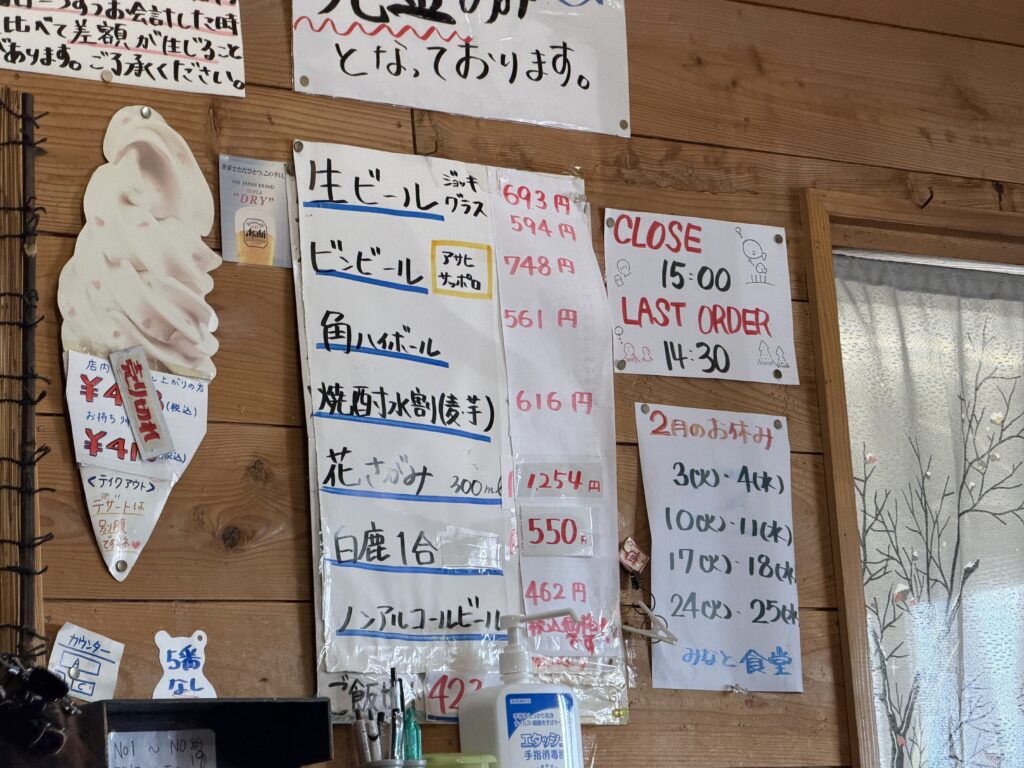 比べて差額が生じること
があります。ご了承ください。
となっております。
世界でただひとつ、この辛口。
THE JAPAN BRAND
"DRY"
Asahi
生ビール
ジョッキ
グラス
693円
594円
ビンビール
アサヒ
サッポロ
748円
角ハイボール
561円
焼酎水割(麦・芋)
616円
花さがみ 300ml
1,254円
白鹿1合
550円
ノンアルコールビール
462円
CLOSE
15:00
LAST ORDER
14:30
2月のお休み
3(火)・4(水)
10(火)・11(水)
17(火)・18(水
24(火)・25(水
みなと食堂
売り切れ
店内
し上がりの方
(税込)
お持ち
<テイクアウト>
デザートは
別腹
ですよね
カウンター
5番
なし
ご飯
No1 ~ No
手指消毒